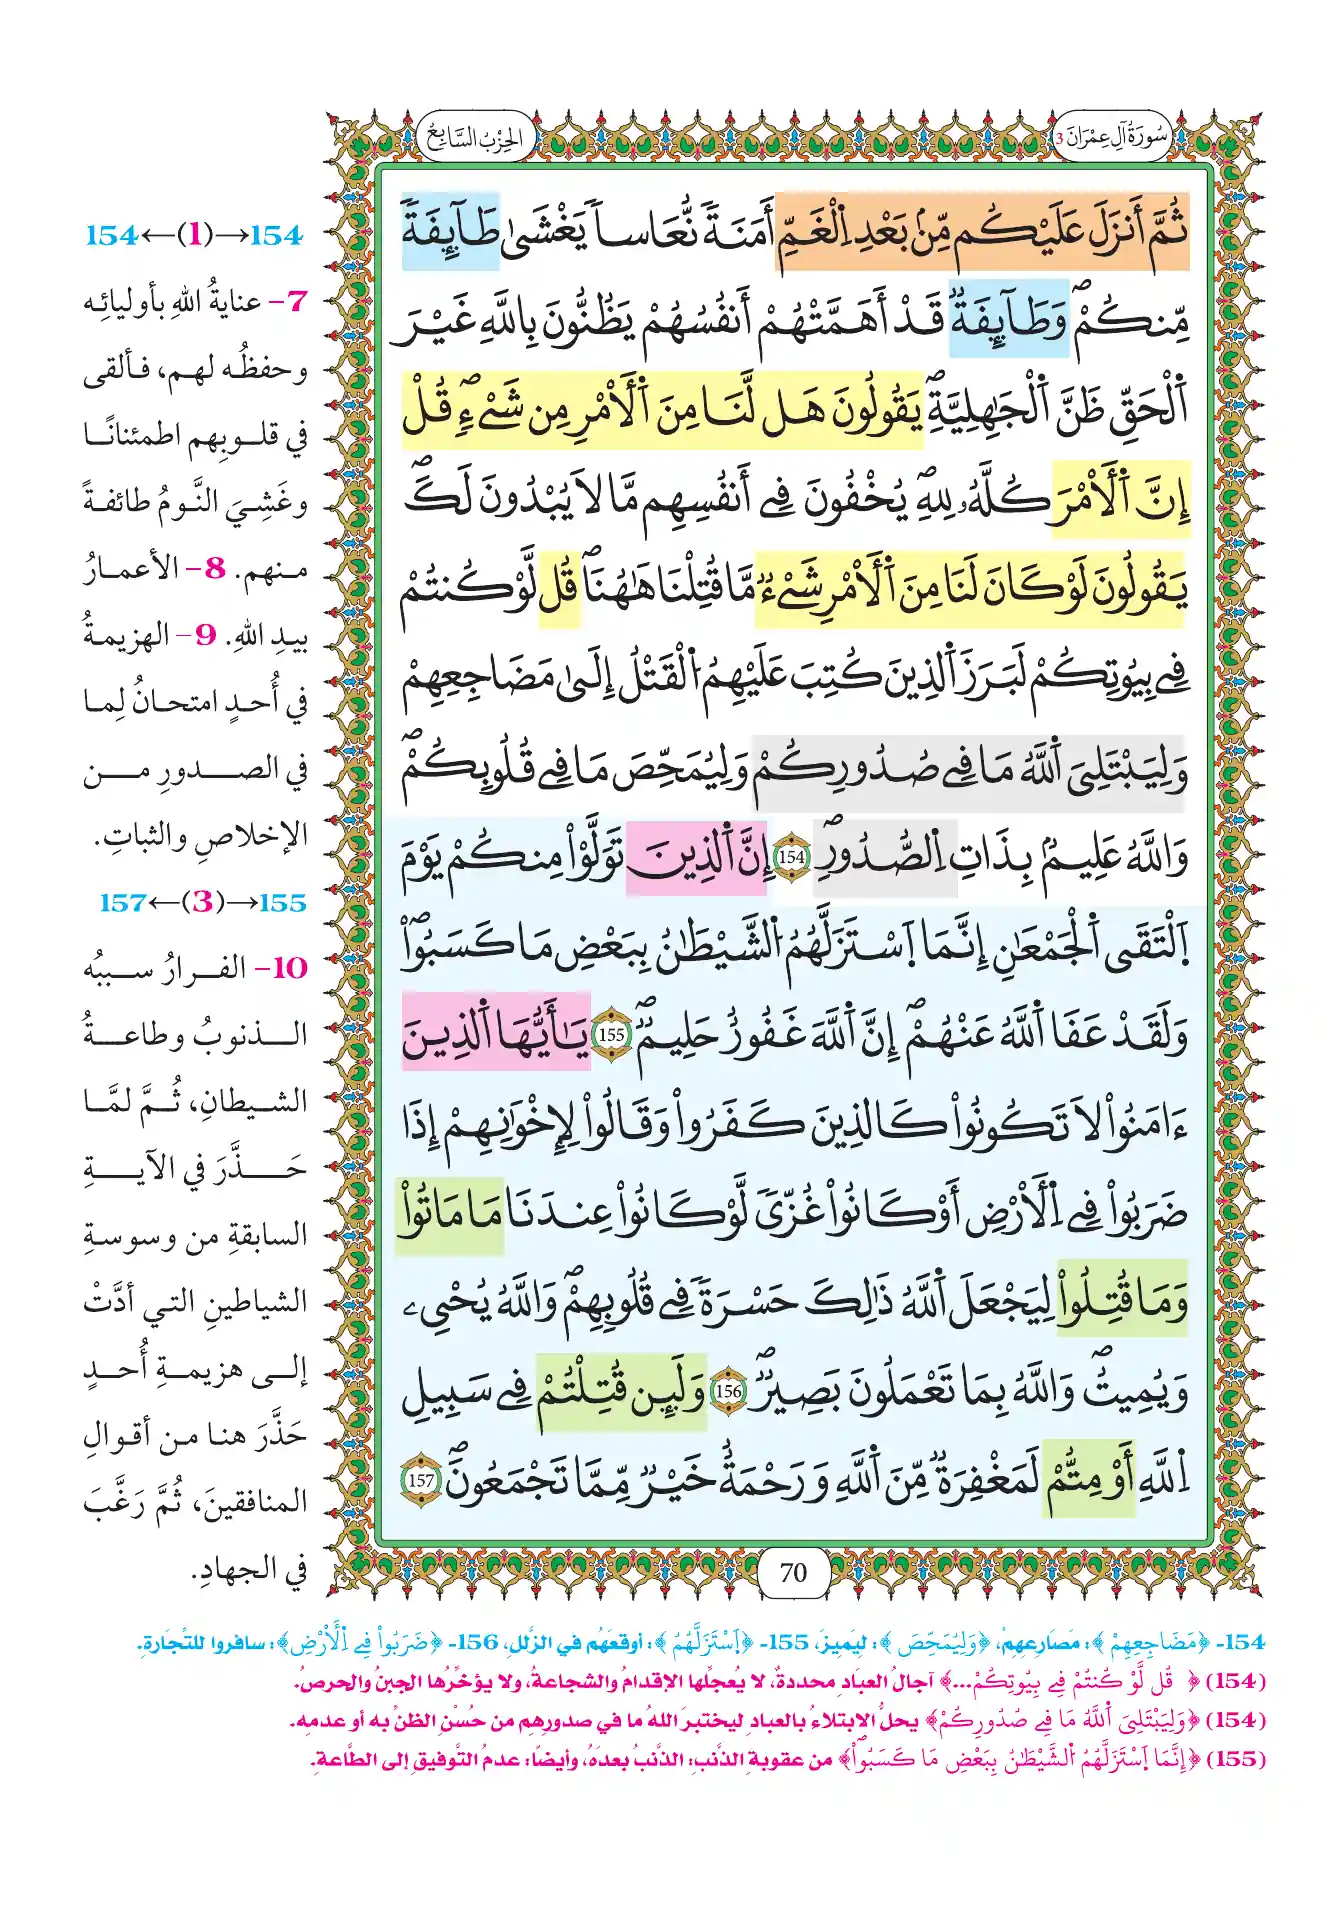 سُورَةُ آلِ عِمْرَانَ 3
الحِزْبُ السَّابِعُ
ثُمَّ أَنزَلَ عَلَيْكُم مِّنۢ بَعْدِ اِ۬لْغَمِّ أَمَنَةٗ نُّعَاساٗ يَغْشَىٰ طَآئِفَةٗ
مِّنكُمْۖ وَطَآئِفَةٞ قَدْ أَهَمَّتْهُمْ أَنفُسُهُمْ يَظُنُّونَ بِاللَّهِ غَيْرَ
اَ۬لْحَقِّ ظَنَّ اَ۬لْجَٰهِلِيَّةِۖ يَقُولُونَ هَل لَّنَا مِنَ اَ۬لَامْرِ مِن شَےْءٖۖ قُلْ
إِنَّ اَ۬لَامْرَ كُلَّهُۥ لِلهِۖ يُخْفُونَ فِے أَنفُسِهِم مَّا لَا يُبْدُونَ لَكَۖ
يَقُولُونَ لَوْ كَانَ لَنَا مِنَ اَ۬لَامْرِ شَےْءٞ مَّا قُتِلْنَا هَٰهُنَاۖ قُل لَّوْ كُنتُمْ
فِے بِيُوتِكُمْ لَبَرَزَ اَ۬لذِينَ كُتِبَ عَلَيْهِمُ اُ۬لْقَتْلُ إِلَىٰ مَضَاجِعِهِمْ
وَلِيَبْتَلِيَ اَ۬للَّهُ مَا فِے صُدُورِكُمْ وَلِيُمَحِّصَ مَا فِے قُلُوبِكُمْۖ
وَاللَّهُ عَلِيمُۢ بِذَاتِ اِ۬لصُّدُورِۖ 154 إِنَّ اَ۬لذِينَ تَوَلَّوْاْ مِنكُمْ يَوْمَ
اَ۪لْتَقَى اَ۬لْجَمْعَٰنِ إِنَّمَا اَ۪سْتَزَلَّهُمُ اُ۬لشَّيْطَٰنُ بِبَعْضِ مَا كَسَبُواْۖ
وَلَقَدْ عَفَا اَ۬للَّهُ عَنْهُمْۖ إِنَّ اَ۬للَّهَ غَفُورٌ حَلِيمٞۖ 155 يَٰأَيُّهَا اَ۬لذِينَ
ءَامَنُواْ لَا تَكُونُواْ كَالذِينَ كَفَرُواْ وَقَالُواْ لِإِخْوَٰنِهِمْ إِذَا
ضَرَبُواْ فِے اِ۬لَارْضِ أَوْ كَانُواْ غُزّىٗ لَّوْ كَانُواْ عِندَنَا مَا مَاتُواْ
وَمَا قُتِلُواْ لِيَجْعَلَ اَ۬للَّهُ ذَٰلِكَ حَسْرَةٗ فِے قُلُوبِهِمْۖ وَاللَّهُ يُحْيِۦ
وَيُمِيتُۖ وَاللَّهُ بِمَا تَعْمَلُونَ بَصِيرٞۖ 156 وَلَئِن قُتِلْتُمْ فِے سَبِيلِ
اِ۬للَّهِ أَوْ مِتُّمْ لَمَغْفِرَةٞ مِّنَ اَ۬للَّهِ وَرَحْمَةٌ خَيْرٞ مِّمَّا تَجْمَعُونَۖ 157
70
154←(1)→154
7- عنايةُ اللهِ بأوليائِه
وحفظُه لهم، فألقى
في قلوبِهم اطمئنانًا
وغَشِيَ النَّومُ طائفةً
منهم. 8- الأعمارُ
بيدِ اللهِ. 9- الهزيمةُ
في أُحدٍ امتحانُ لِما
في الصدورِ من
الإخلاصِ والثباتِ.
155→(3)←157
10- الفرارُ سببُه
الذنوبُ وطاعةُ
الشيطانِ، ثُمَّ لمَّا
حَذَّرَ في الآيةِ
السابقةِ من وسوسةِ
الشياطينِ التي أدَّتْ
إلى هزيمةِ أُحدٍ
حَذَّرَ هنا من أقوالِ
المنافقينَ، ثُمَّ رَغَّبَ
في الجهادِ.
154- ﴿مَضَاجِعِهِمْ﴾: مَصَارِعِهِمْ، ﴿وَلِيُمَحِّصَ﴾: لِيَمِيزَ، 155- ﴿اَ۪سْتَزَلَّهُمُ﴾: أوقعَهُم في الزَّللِ، 156- ﴿ضَرَبُواْ فِے اِ۬لَارْضِ﴾: سافروا للتِّجَارةِ.
(154) ﴿قُل لَّوْ كُنتُمْ فِے بِيُوتِكُمْ...﴾ آجالُ العبَادِ محددةٌ، لا يُعجلُها الإقدامُ والشجاعةُ، ولا يؤخِّرُها الجبنُ والحرصُ.
(154) ﴿وَلِيَبْتَلِيَ اَ۬للَّهُ مَا فِے صُدُورِكُمْ﴾ يحلُّ الابتلاءُ بالعبادِ ليختبرَ اللهُ ما في صدورِهم من حُسْنِ الظنِّ به أو عدمِه.
(155) ﴿إِنَّمَا اَ۪سْتَزَلَّهُمُ اُ۬لشَّيْطَٰنُ بِبَعْضِ مَا كَسَبُواْۖ﴾ من عقوبةِ الذَّنبِ: الذَّنبُ بعدَهُ، وأيضًا: عدمُ التَّوفيقِ إلى الطَّاعةِ.